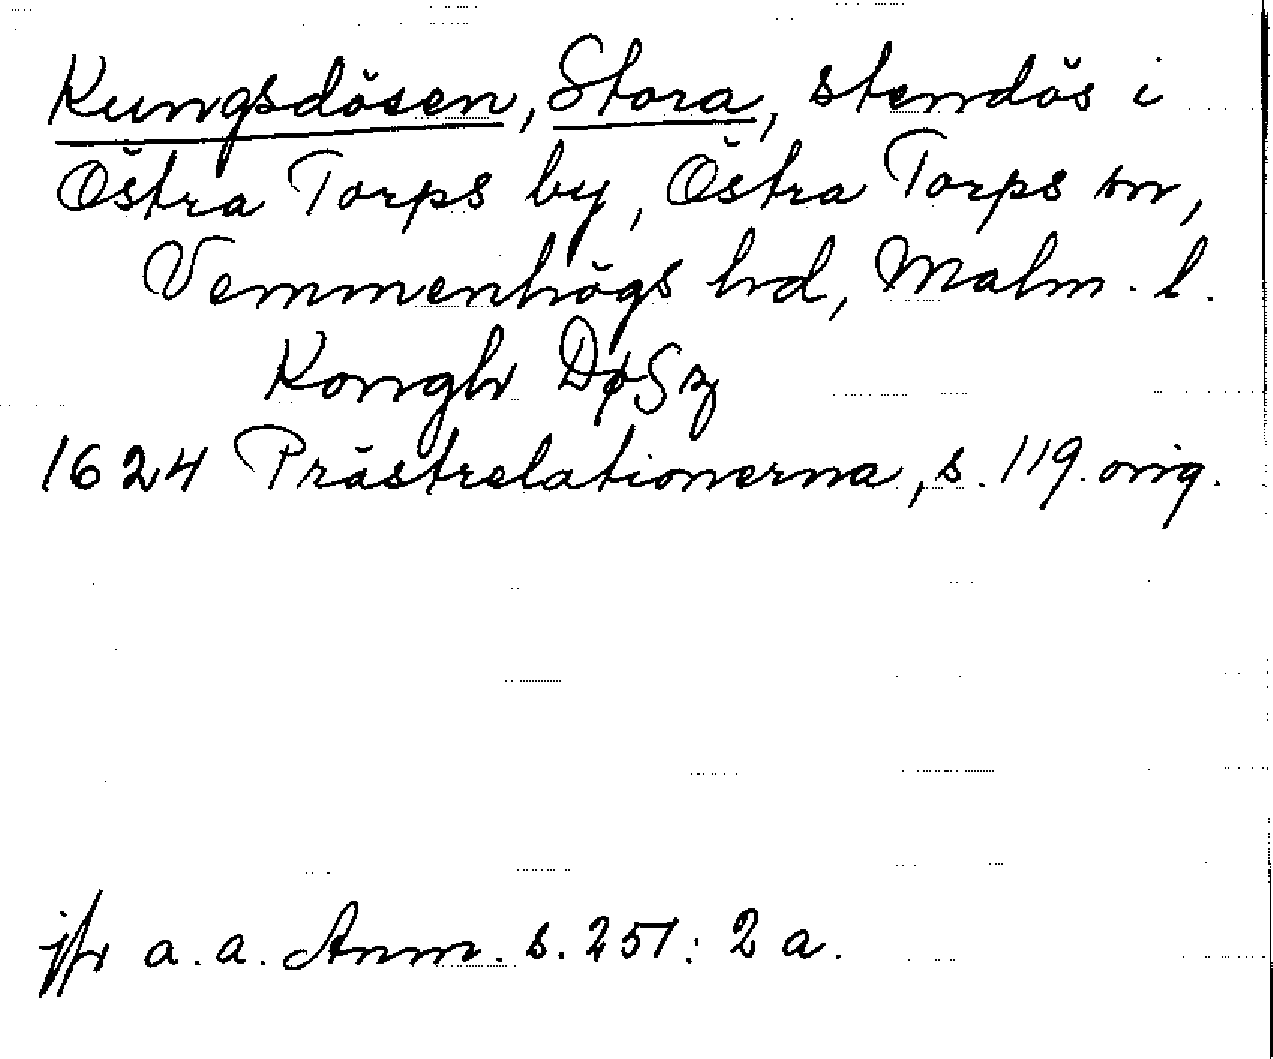 Kungsdösen, Stora, stendös i
Östra Torps by, Östra Torps sn,
Vemmenhögs hd, Malm. l.
Kongh DøSz
1624 Prästrelationerna, s. 119. orig.
jfr a. a. Anm. s. 251: 2 a.